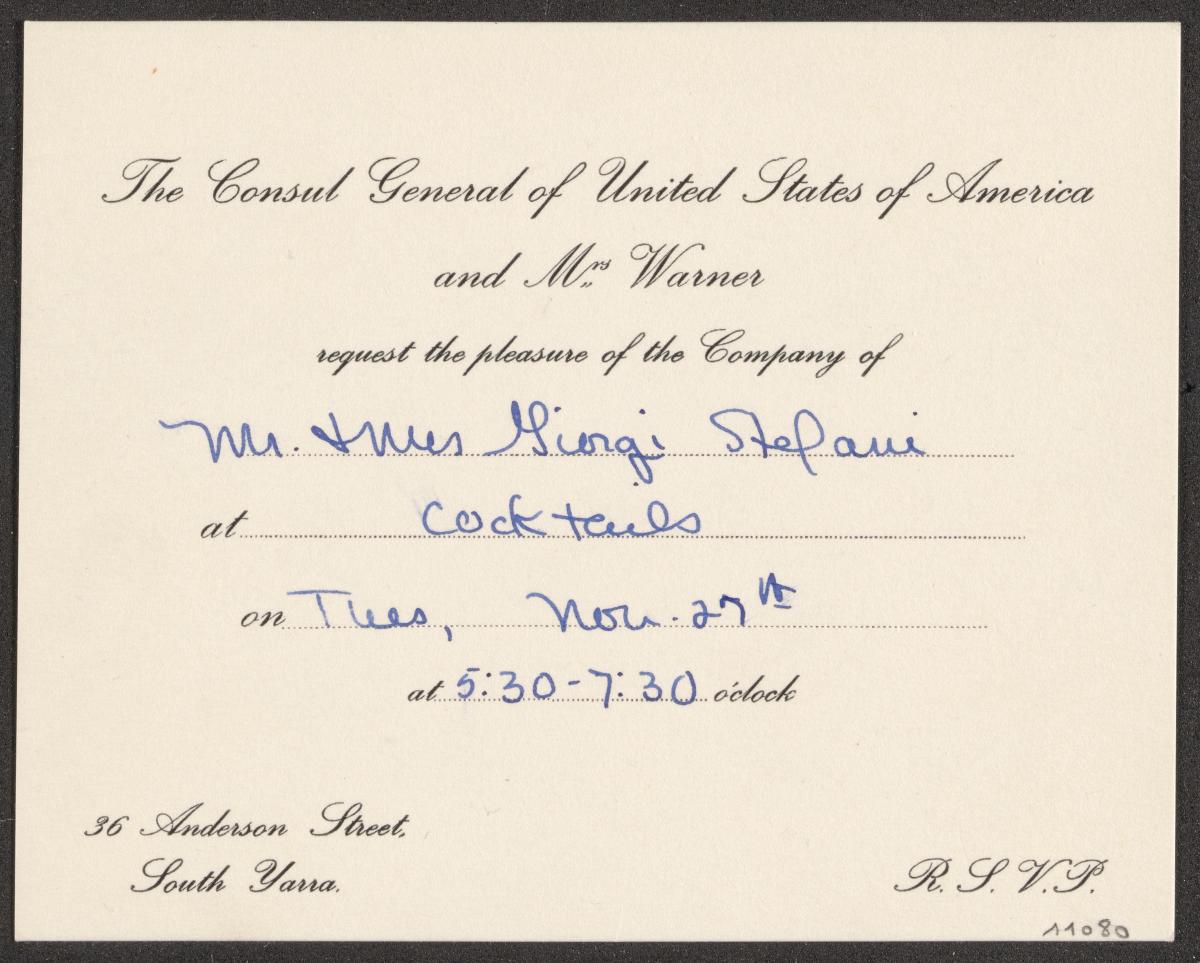 The Consul General of United States of America
and Mrs Warner
request the pleasure of the Company of
Mr. & Mrs Giorgi Stefani
at Cocktails
on Tues, Nov. 27th
at 5:30-7:30 o'clock
36 Anderson Street,
South Yarra.
R. S. V. P.
11080